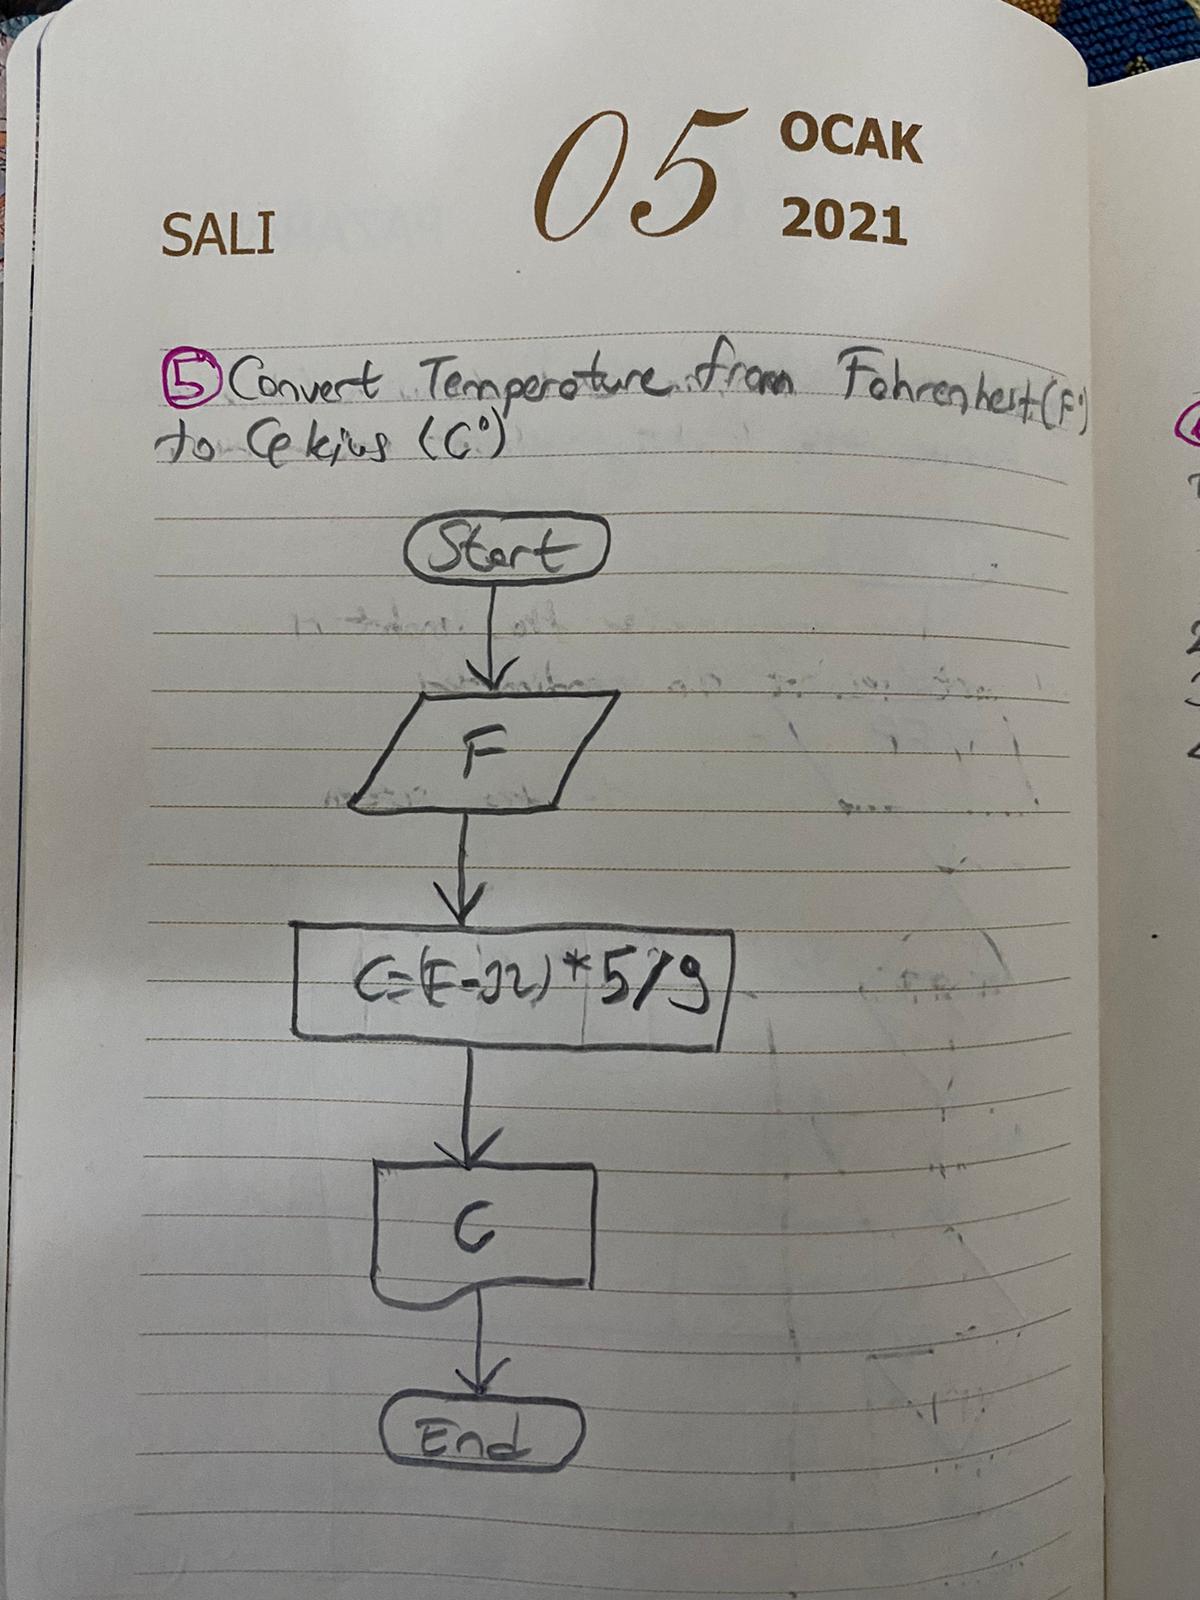 SALI
05
OCAK
2021
5 Convert Temperature from Fahrenheit (F°)
to Celsius (C°)
Start
F
C=(F-32)*5/9
C
End